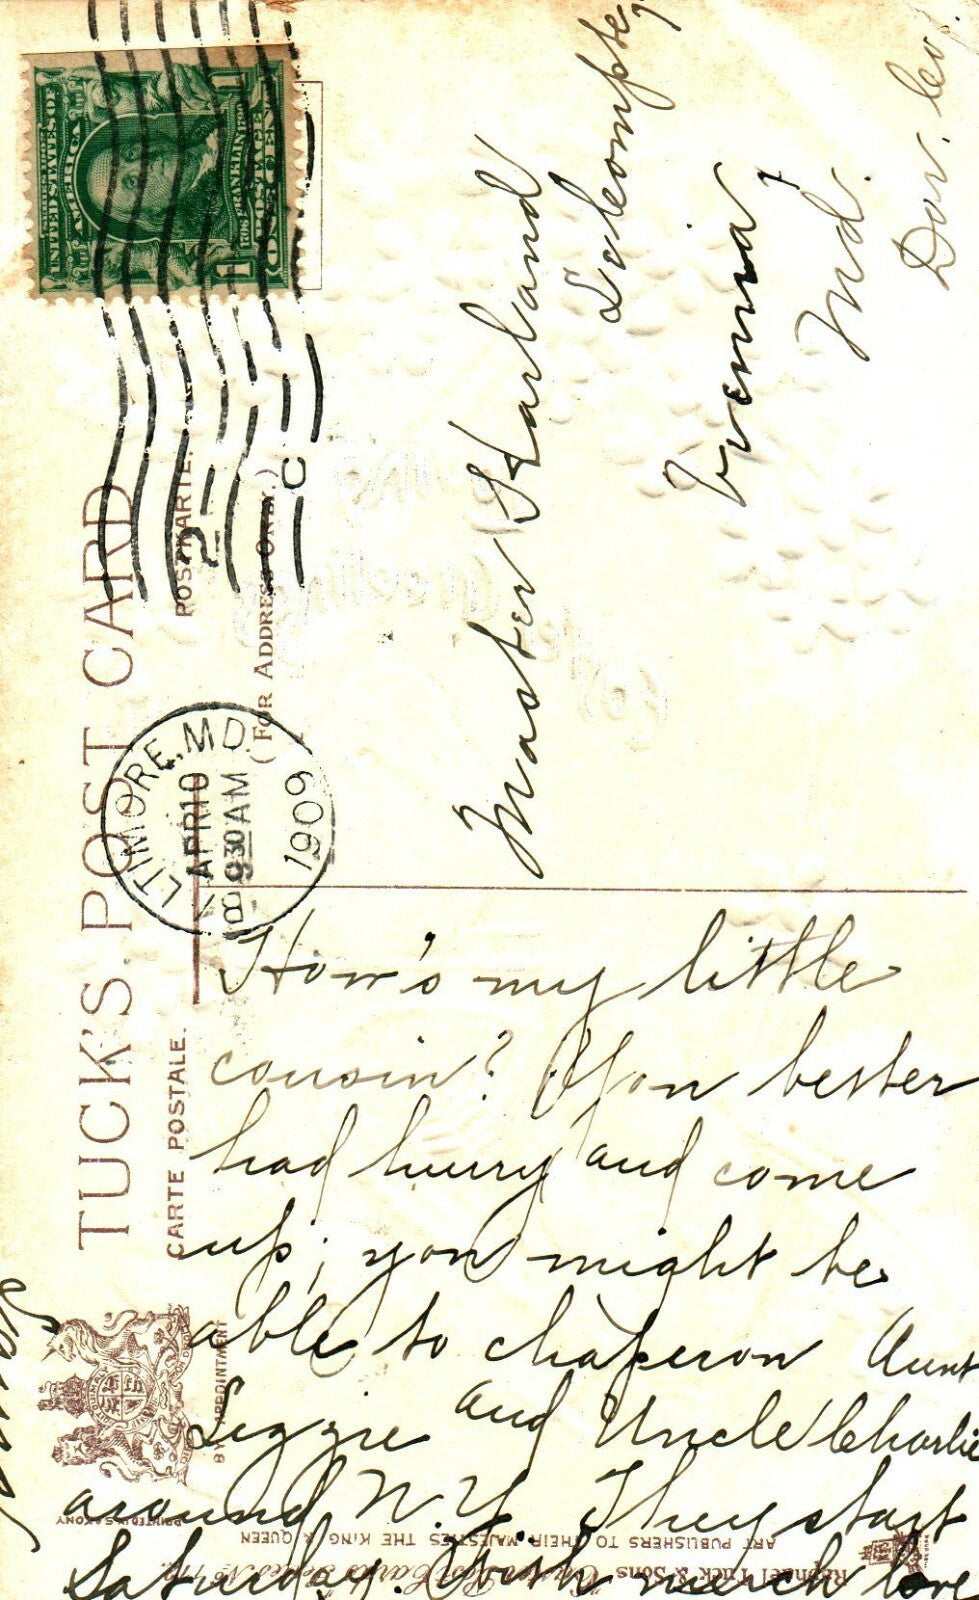 UNITED STATES OF
AMERICA
FRANKLIN
POSTAGE
ONE CENT
1 1
TUCK'S POST CARD
CARTE POSTALE.
POSTKARTE.
(FOR ADDRESS ONLY.)
LTIMORE, MD.
APR 10
9 30 AM
1909
2
C
Master Harland
Lecompte,
Vienna,
Md.
Dor. Co.
How's my little
cousin? You better
had hurry and come
up; you might be
able to chaperon Aunt
Lizzie and Uncle Charlie
around N.Y. They start
Saturday. With much love
BY APPOINTMENT
PRINTED IN SAXONY
Raphael Tuck & Sons
ART PUBLISHERS TO THEIR MAJESTIES THE KING & QUEEN